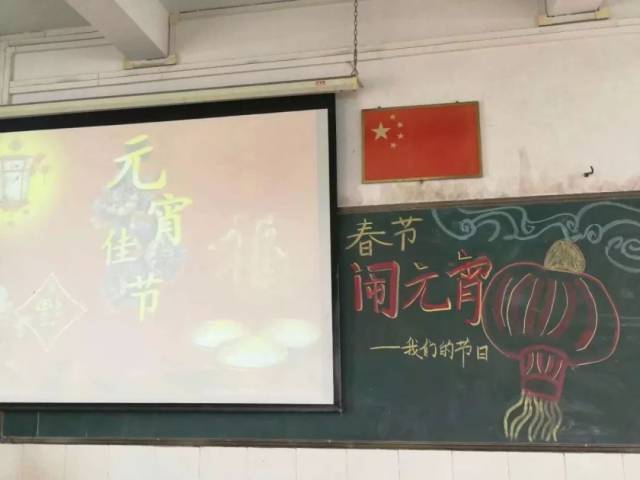 元宵
佳节
福
春节
闹元宵
——我们的节日